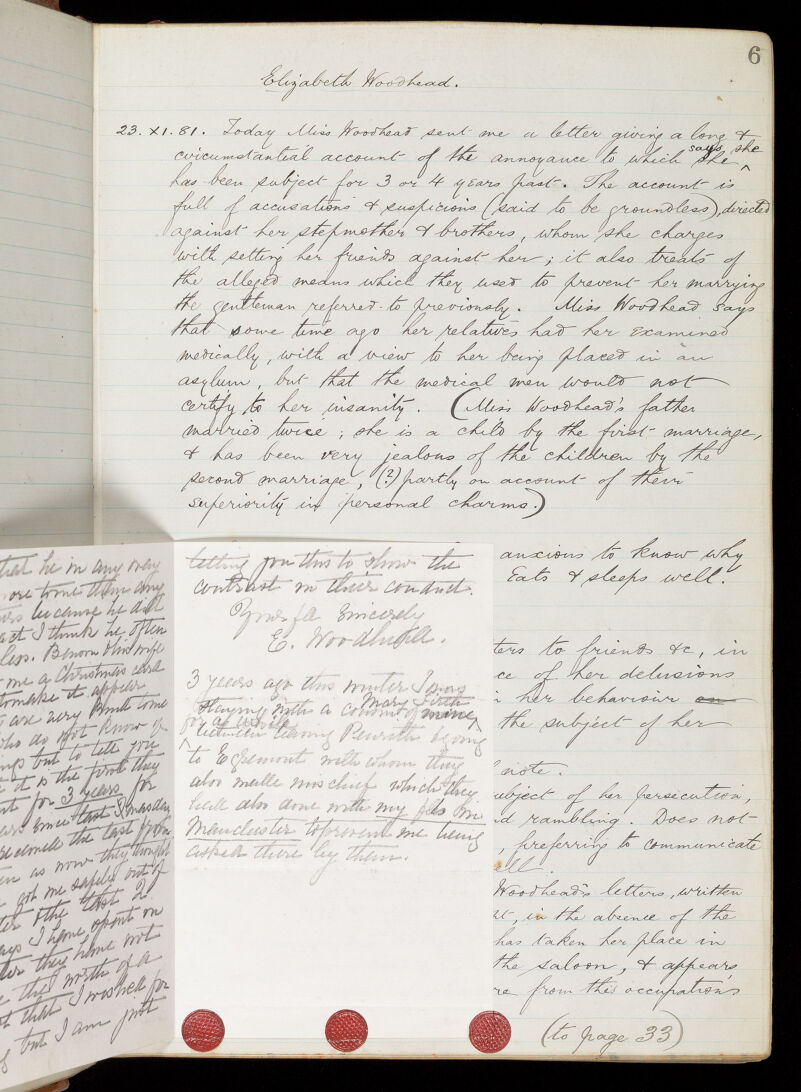 6
Elizabeth Woodhead.
23. XI. 81. Today Miss Woodhead sent me a letter giving a long &
circumstantial account of the annoyance to which she says, she
has been subject for 3 or 4 years past. The account is
full of accusations & suspicions (said to be groundless), directed
against her stepmother & brothers, whom she charges
with setting her friends against her; it also treats of
the alleged means which they used to prevent her marrying
the gentleman referred to previously. Miss Woodhead says
that some time ago her relatives had her examined
medically, with a view to her being placed in an
asylum, but that the medical men would not
certify to her insanity. (Miss Woodhead's father
married twice; she is a child by the first marriage,
& has been very jealous of the children by the
second marriage, (?) partly on account of their
superiority in personal charms.)
anxious to know why
Eats & sleeps well.
ters to friends &c, in
ce of her delusions
her behaviour on
the subject of her
note.
ubject of her persecution,
d rambling. Does not
, preferring to communicate
ell.
Woodhead's letters, written
, in the absence of the
has taken her place in
the saloon, & appears
re from the occupations
(to page 33)
that he in any way
more to me than any
because he did
act I think he often
less. B
me a Christmas card
to make it appear
are very much to me
who do not know of
but to tell you
it is the first they
for 3 years for
since last Xmas day
the last
as now they thought
got me safely out of
the last 2
I have spent on
they have not
the worth of a
that I wished for
but I am just
telling you this to show the
contrast in their conduct.
Yours sincerely
E. Woodhead.
3 years ago this winter I was
staying with a cousin of mine Mary
for a while between leaving Penrith & going
to Egremont with whom they
also made mischief which they
had also done with my
Manchester to prevent me being
asked there by them.